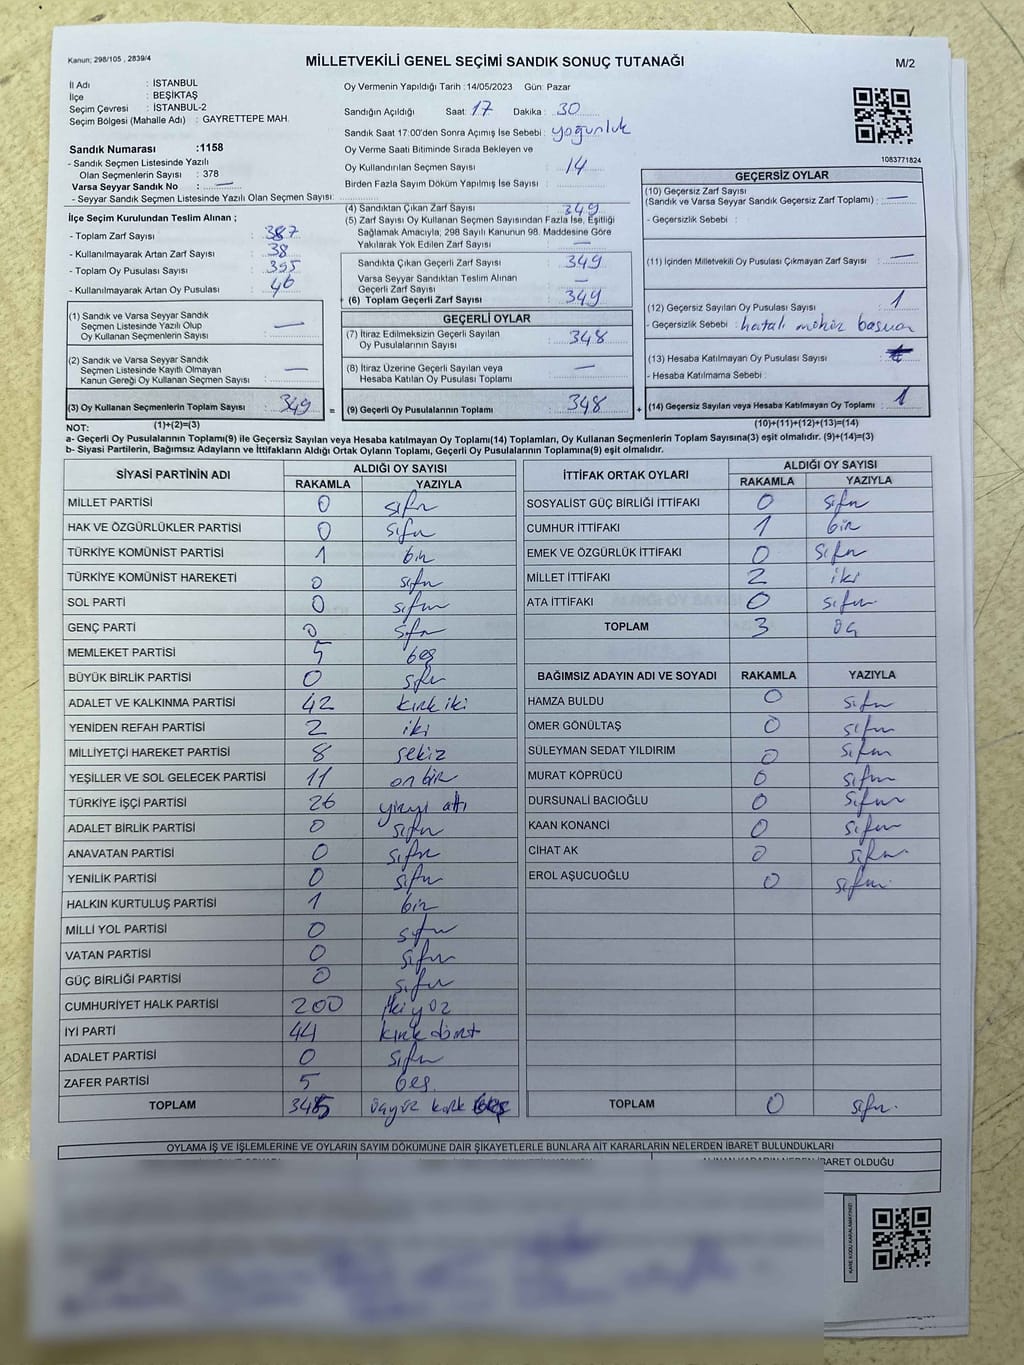 Kanun; 298/105 , 2839/4
MİLLETVEKİLİ GENEL SEÇİMİ SANDIK SONUÇ TUTANAĞI
M/2
İl Adı : İSTANBUL
İlçe : BEŞİKTAŞ
Seçim Çevresi : İSTANBUL-2
Seçim Bölgesi (Mahalle Adı) : GAYRETTEPE MAH.
Sandık Numarası :1158
- Sandık Seçmen Listesinde Yazılı
Olan Seçmenlerin Sayısı : 378
Varsa Seyyar Sandık No : —
- Seyyar Sandık Seçmen Listesinde Yazılı Olan Seçmen Sayısı:
Oy Vermenin Yapıldığı Tarih :14/05/2023 Gün: Pazar
Sandığın Açıldığı Saat: 17 Dakika : 30
Sandık Saat 17:00'den Sonra Açımış İse Sebebi : yoğunluk
Oy Verme Saati Bitiminde Sırada Bekleyen ve
Oy Kullandırılan Seçmen Sayısı : 14
Birden Fazla Sayım Döküm Yapılmış İse Sayısı :
1083771824
İlçe Seçim Kurulundan Teslim Alınan ;
- Toplam Zarf Sayısı : 387
- Kullanılmayarak Artan Zarf Sayısı : 38
- Toplam Oy Pusulası Sayısı : 395
- Kullanılmayarak Artan Oy Pusulası : 46
(1) Sandık ve Varsa Seyyar Sandık
Seçmen Listesinde Yazılı Olup
Oy Kullanan Seçmenlerin Sayısı : —
(2) Sandık ve Varsa Seyyar Sandık
Seçmen Listesinde Kayıtlı Olmayan
Kanun Gereği Oy Kullanan Seçmen Sayısı : —
(3) Oy Kullanan Seçmenlerin Toplam Sayısı : 349
(1)+(2)=(3)
(4) Sandıktan Çıkan Zarf Sayısı : 349
(5) Zarf Sayısı Oy Kullanan Seçmen Sayısından Fazla İse, Eşitliği
Sağlamak Amacıyla; 298 Sayılı Kanunun 98. Maddesine Göre
Yakılarak Yok Edilen Zarf Sayısı : —
Sandıkta Çıkan Geçerli Zarf Sayısı : 349
Varsa Seyyar Sandıktan Teslim Alınan
Geçerli Zarf Sayısı : —
(6) Toplam Geçerli Zarf Sayısı : 349
GEÇERLİ OYLAR
(7) İtiraz Edilmeksizin Geçerli Sayılan
Oy Pusulalarının Sayısı : 348
(8) İtiraz Üzerine Geçerli Sayılan veya
Hesaba Katılan Oy Pusulası Toplamı : —
= (9) Geçerli Oy Pusulalarının Toplamı : 348 +
GEÇERSİZ OYLAR
(10) Geçersiz Zarf Sayısı
(Sandık ve Varsa Seyyar Sandık Geçersiz Zarf Toplamı) : —
- Geçersizlik Sebebi :
(11) İçinden Milletvekili Oy Pusulası Çıkmayan Zarf Sayısı : —
(12) Geçersiz Sayılan Oy Pusulası Sayısı : 1
- Geçersizlik Sebebi : hatalı mühür basılan
(13) Hesaba Katılmayan Oy Pusulası Sayısı :
- Hesaba Katılmama Sebebi :
(14) Geçersiz Sayılan veya Hesaba Katılmayan Oy Toplamı : 1
(10)+(11)+(12)+(13)=(14)
NOT:
a- Geçerli Oy Pusulalarının Toplamı(9) ile Geçersiz Sayılan veya Hesaba katılmayan Oy Toplamı(14) Toplamları, Oy Kullanan Seçmenlerin Toplam Sayısına(3) eşit olmalıdır. (9)+(14)=(3)
b- Siyasi Partilerin, Bağımsız Adayların ve İttifakların Aldığı Ortak Oyların Toplamı, Geçerli Oy Pusulalarının Toplamına(9) eşit olmalıdır.
SİYASİ PARTİNİN ADI ALDIĞI OY SAYISI
RAKAMLA YAZIYLA
MİLLET PARTİSİ 0 sıfır
HAK VE ÖZGÜRLÜKLER PARTİSİ 0 sıfır
TÜRKİYE KOMÜNİST PARTİSİ 1 bir
TÜRKİYE KOMÜNİST HAREKETİ 0 sıfır
SOL PARTİ 0 sıfır
GENÇ PARTİ 0 sıfır
MEMLEKET PARTİSİ 5 beş
BÜYÜK BİRLİK PARTİSİ 0 sıfır
ADALET VE KALKINMA PARTİSİ 42 kırk iki
YENİDEN REFAH PARTİSİ 2 iki
MİLLİYETÇİ HAREKET PARTİSİ 8 sekiz
YEŞİLLER VE SOL GELECEK PARTİSİ 11 on bir
TÜRKİYE İŞÇİ PARTİSİ 26 yirmi altı
ADALET BİRLİK PARTİSİ 0 sıfır
ANAVATAN PARTİSİ 0 sıfır
YENİLİK PARTİSİ 0 sıfır
HALKIN KURTULUŞ PARTİSİ 1 bir
MİLLİ YOL PARTİSİ 0 sıfır
VATAN PARTİSİ 0 sıfır
GÜÇ BİRLİĞİ PARTİSİ 0 sıfır
CUMHURİYET HALK PARTİSİ 200 iki yüz
İYİ PARTİ 44 kırk dört
ADALET PARTİSİ 0 sıfır
ZAFER PARTİSİ 5 beş
TOPLAM 345 üçyüz kırk beş
İTTİFAK ORTAK OYLARI ALDIĞI OY SAYISI
RAKAMLA YAZIYLA
SOSYALİST GÜÇ BİRLİĞİ İTTİFAKI 0 sıfır
CUMHUR İTTİFAKI 1 bir
EMEK VE ÖZGÜRLÜK İTTİFAKI 0 sıfır
MİLLET İTTİFAKI 2 iki
ATA İTTİFAKI 0 sıfır
TOPLAM 3 üç
BAĞIMSIZ ADAYIN ADI VE SOYADI RAKAMLA YAZIYLA
HAMZA BULDU 0 sıfır
ÖMER GÖNÜLTAŞ 0 sıfır
SÜLEYMAN SEDAT YILDIRIM 0 sıfır
MURAT KÖPRÜCÜ 0 sıfır
DURSUNALİ BACIOĞLU 0 sıfır
KAAN KONANCİ 0 sıfır
CİHAT AK 0 sıfır
EROL AŞUCUOĞLU 0 sıfır
TOPLAM 0 sıfır
OYLAMA İŞ VE İŞLEMLERİNE VE OYLARIN SAYIM DÖKÜMÜNE DAİR ŞİKAYETLERLE BUNLARA AİT KARARLARIN NELERDEN İBARET BULUNDUKLARI
ALINAN KARARIN NEDEN İBARET OLDUĞU
KARE KODU KARALAMAYINIZ!